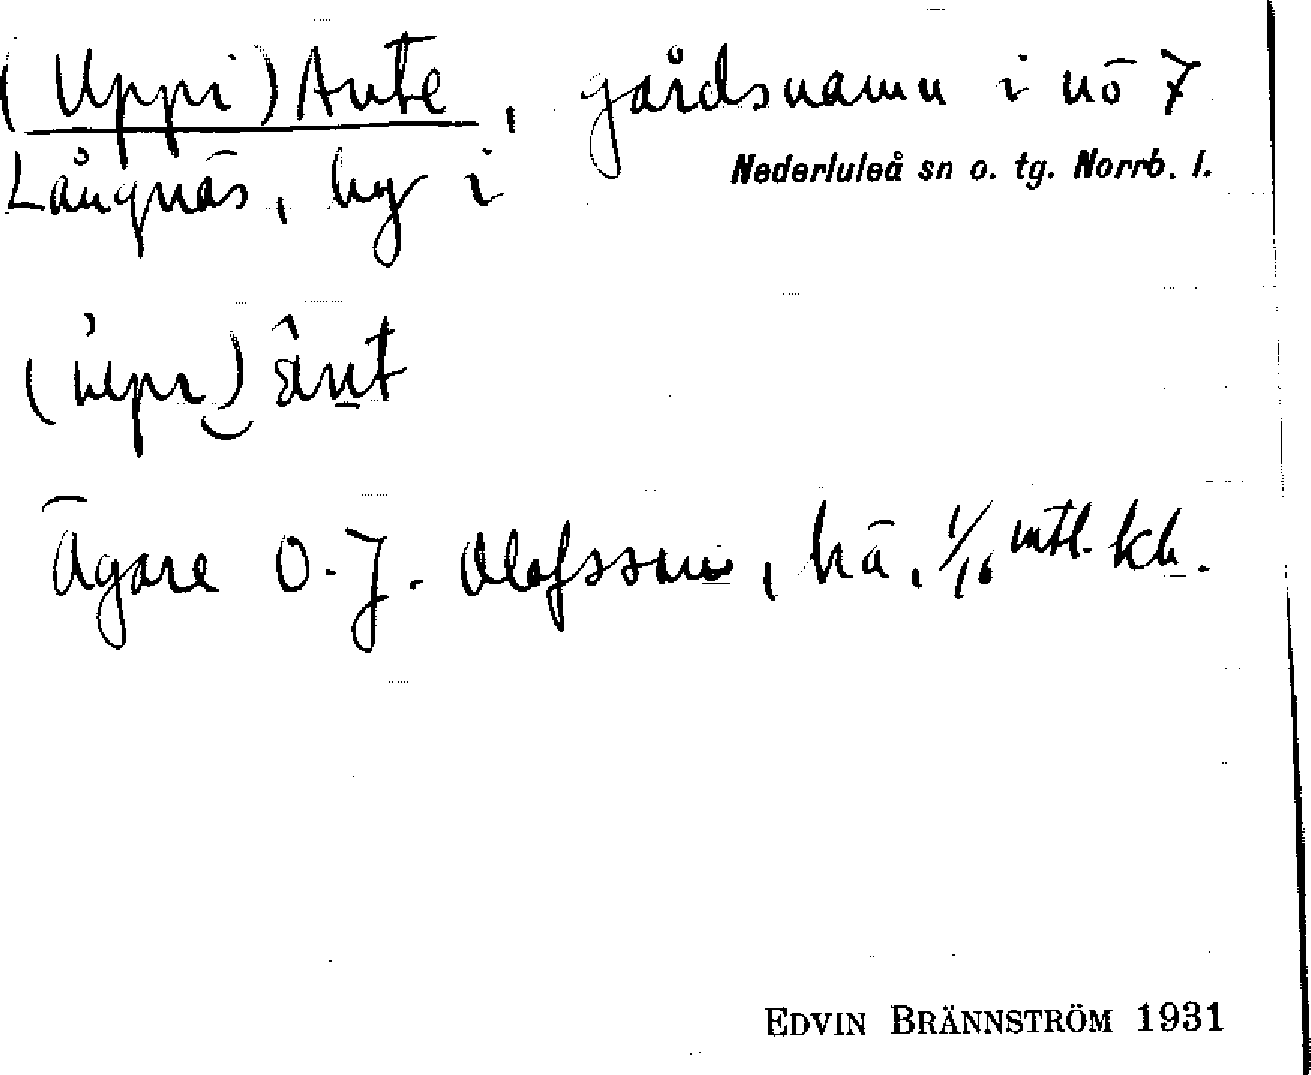 (Uppi) Ante, gårdsnamn i nö 7
Långnäs, by i Nederluleå sn o. tg. Norrb. l.
Ägare O. J. Olofsson, hä, 1/16 mtl. kch.
EDVIN BRÄNNSTRÖM 1931